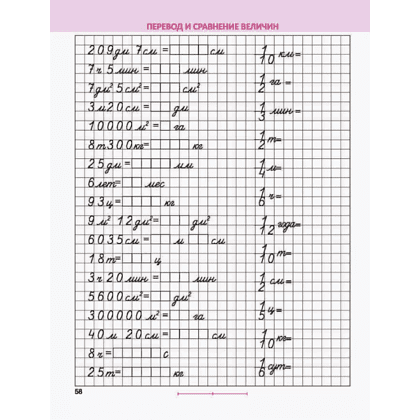 ПЕРЕВОД И СРАВНЕНИЕ ВЕЛИЧИН
209дм 7см = см
7ч 5 мин = мин
7дм² 5см² = см²
3м20см = дм
10000м² = га
8т300кг = кг
25дм = мм
6лет = мес
93ц = кг
9м² 12дм² = дм²
6035см = м см
18т = ц
3ч 20мин = мин
5600см² = дм²
300000м² = га
40м 20см = см
8ч = с
25т = кг
1/10 км =
1/2 га =
1/3 мин =
1/2 т =
1/4 м =
1/6 ч =
1/12 года =
1/10 т =
1/2 см =
1/5 ц =
1/10 кг =
1/6 сут =
58